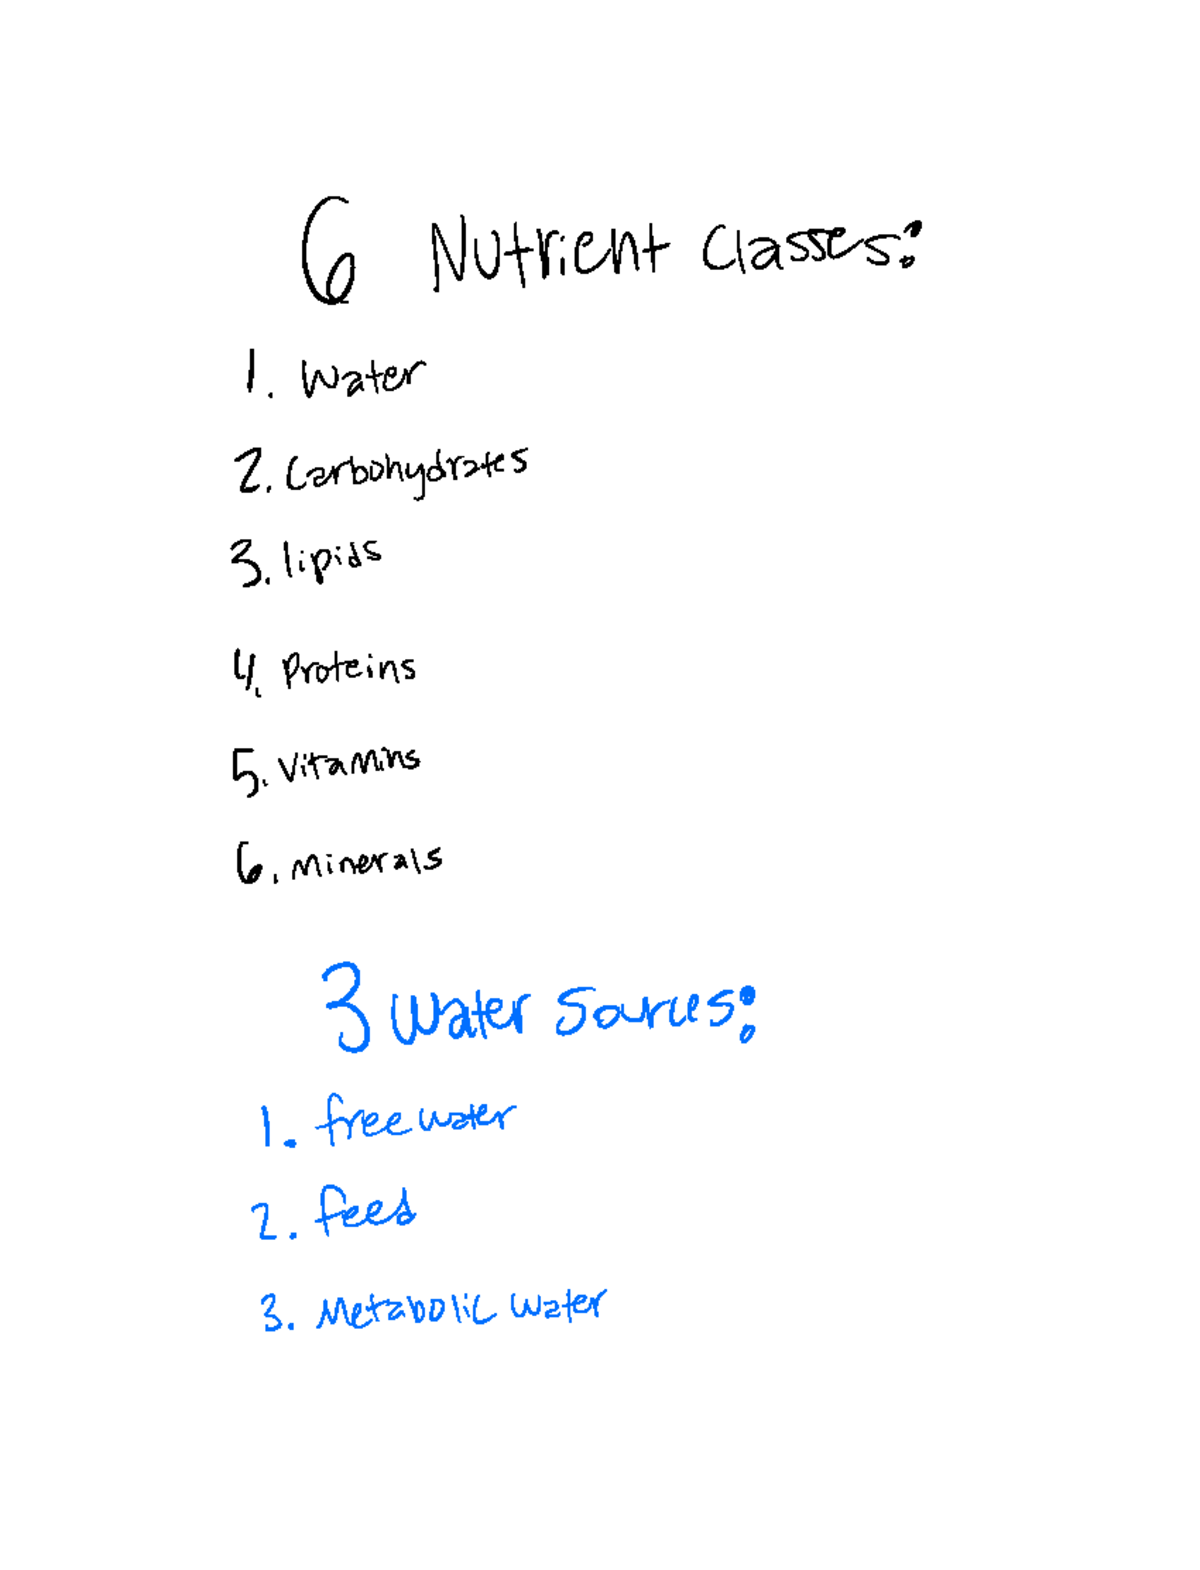 6 Nutrient Classes:
1. Water
2. Carbohydrates
3. lipids
4. Proteins
5. Vitamins
6. minerals
3 Water Sources:
1. free water
2. feed
3. Metabolic Water